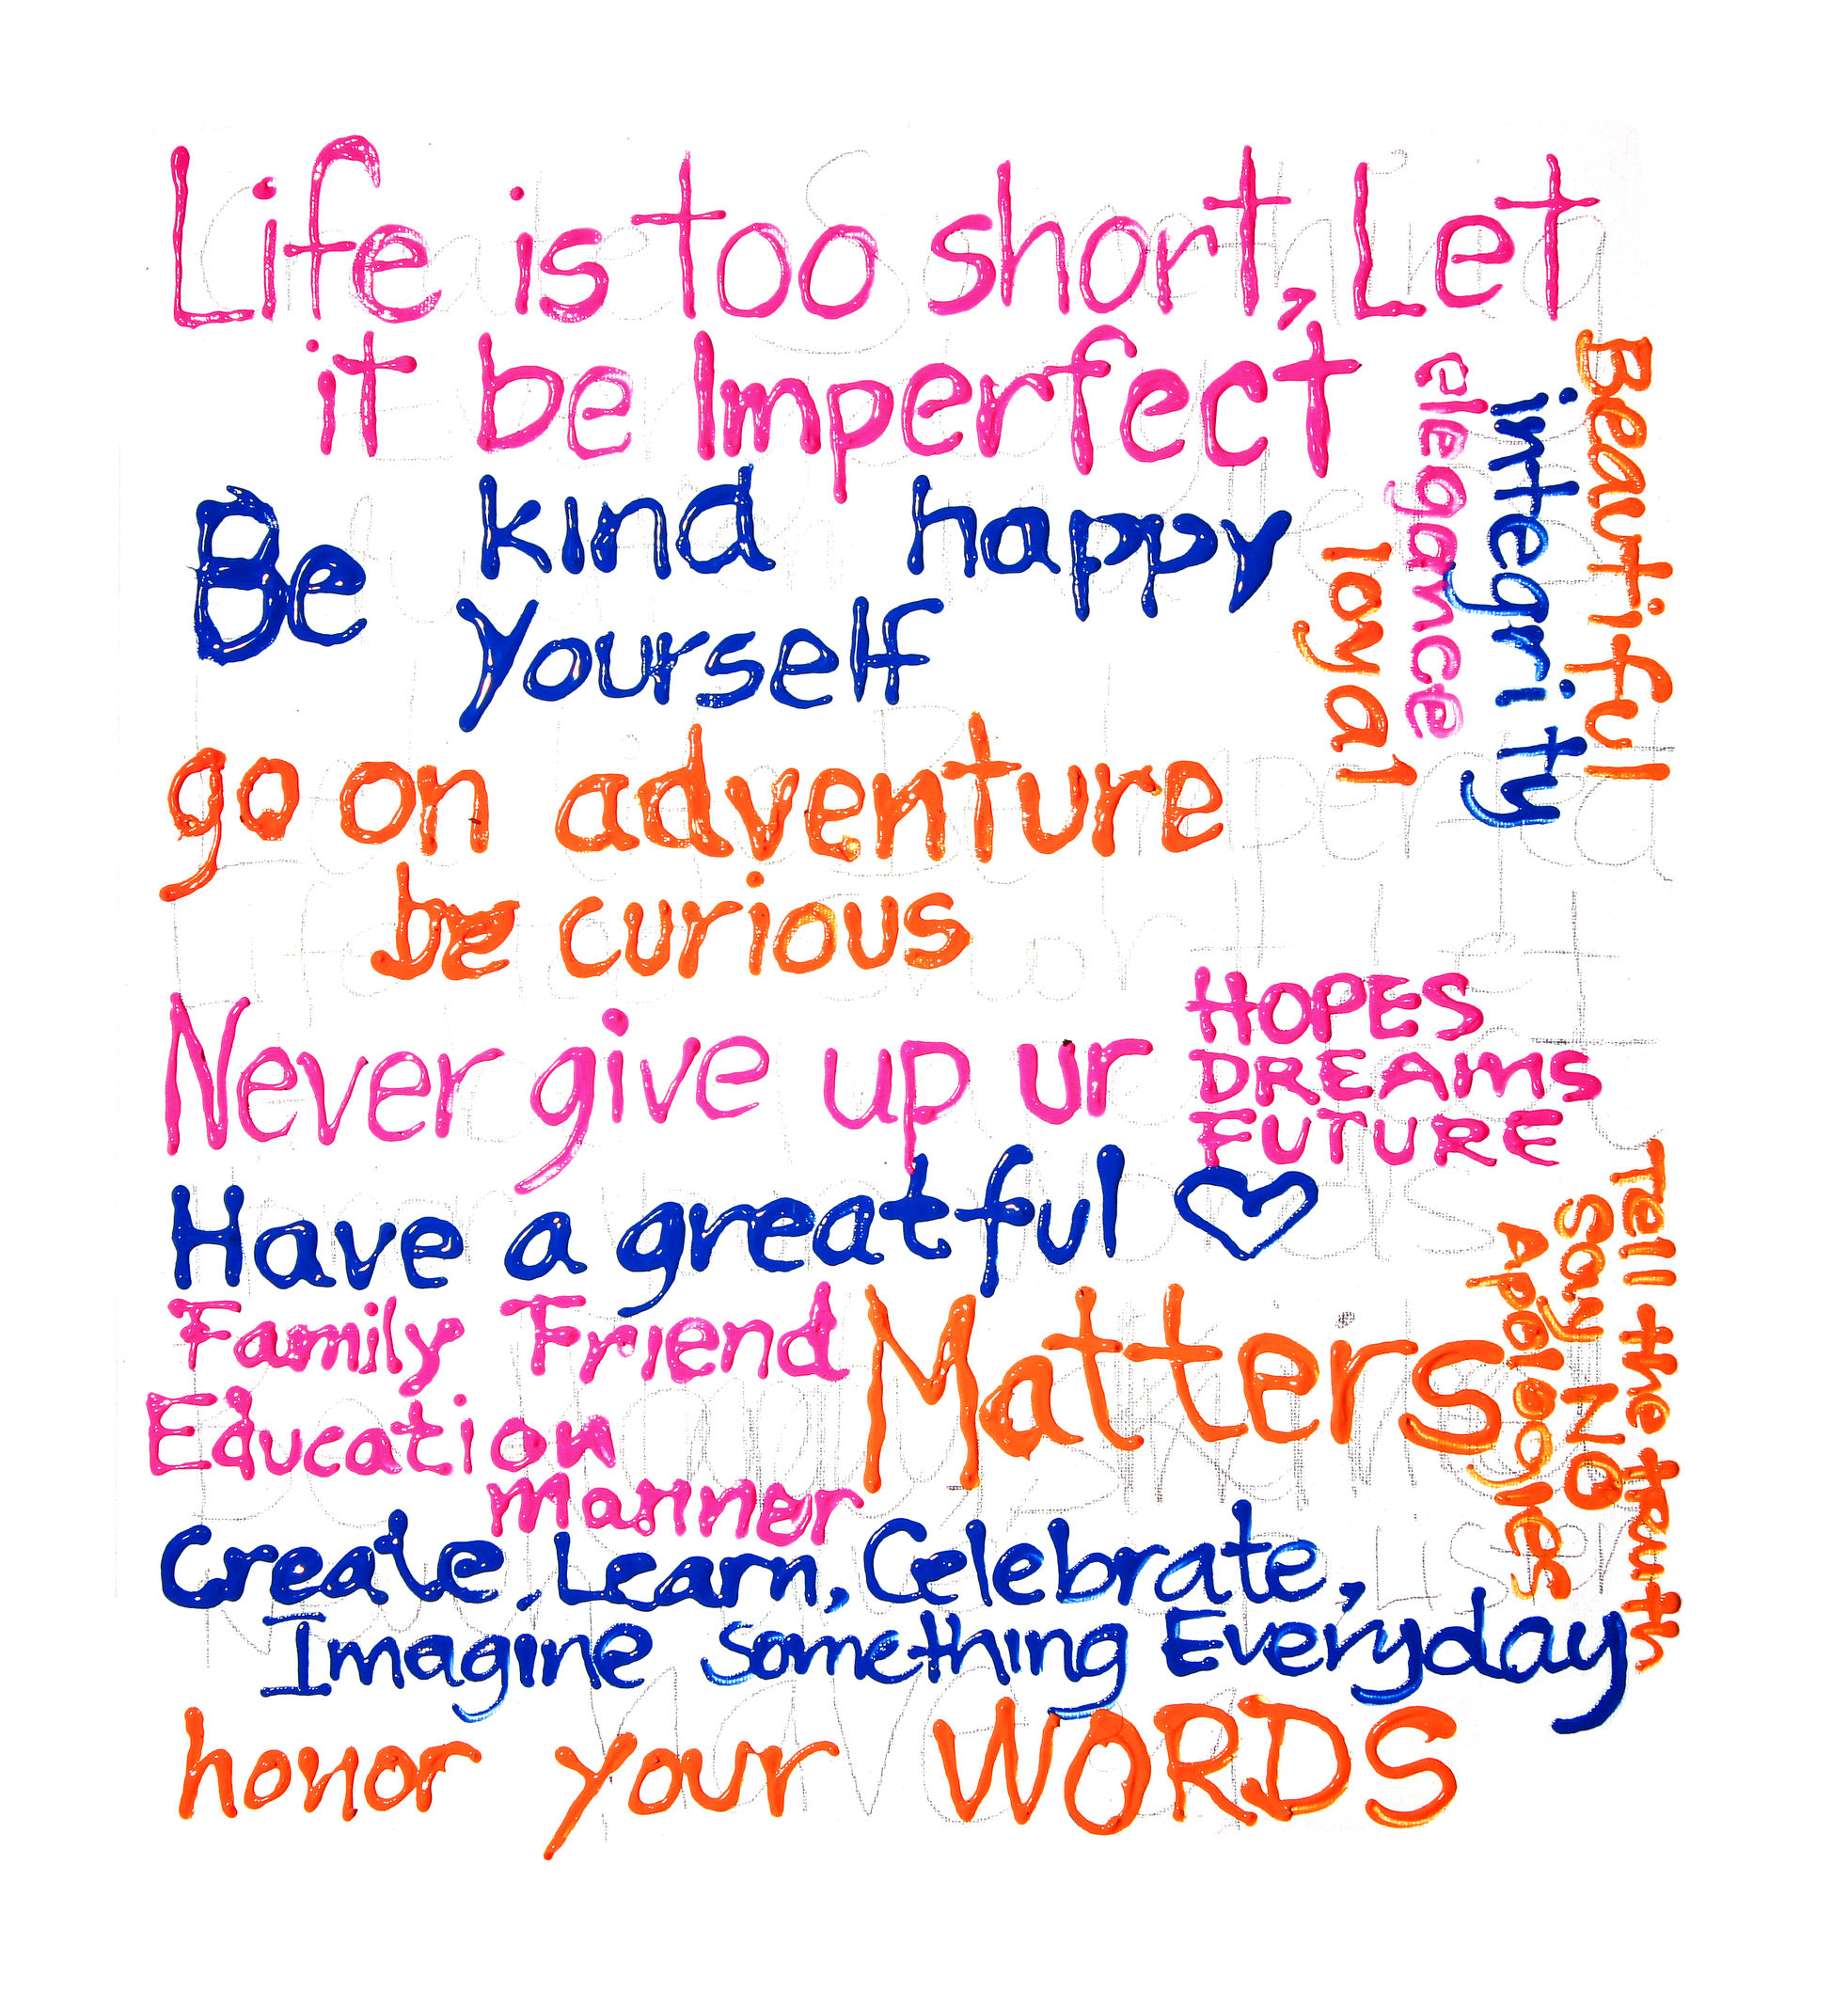 Life is too short, Let
it be Imperfect
Beautiful
integrity
elegance
loyal
Be kind happy
yourself
go on adventure
be curious
Never give up ur
HOPES
DREAMS
FUTURE
Have a greatful
Tell the truth
Say NO
Apologies
Family Friend
Education
manner
Matters
Create, Learn, Celebrate,
Imagine something Everyday
honor your WORDS